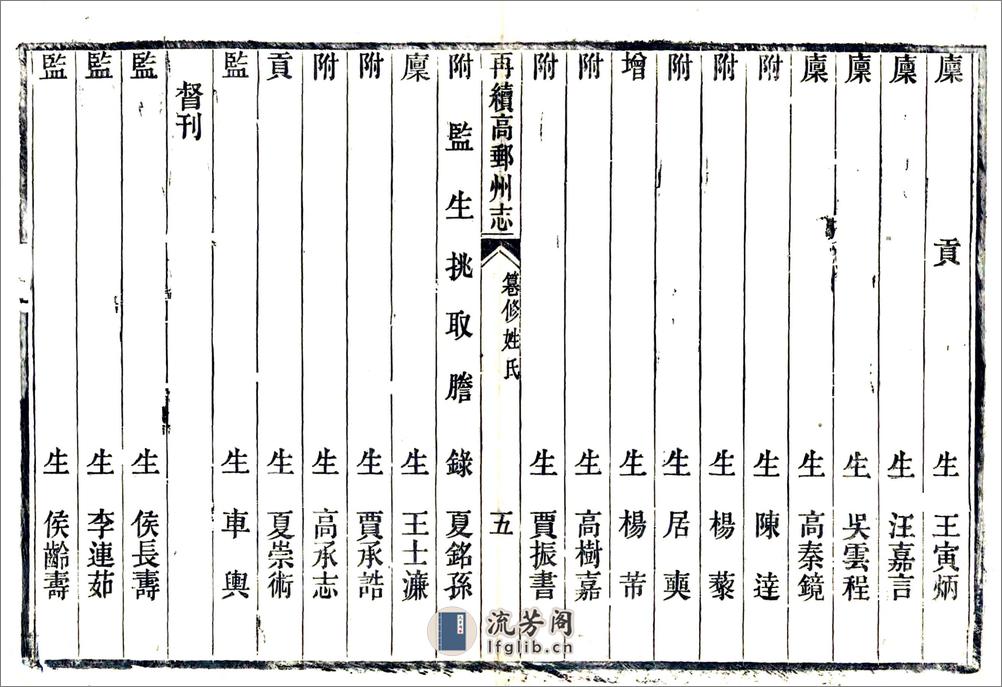 廩貢生王寅炳
廩生汪嘉言
廩生吳雲程
廩生高秦鏡
附生陳逹
附生楊藜
附生居奭
增生楊芾
附生高樹嘉
附生賈振書
再續高郵州志
纂修姓氏
五
附監生挑取謄錄夏銘孫
廩生王士濂
附生賈承誥
附生高承志
貢生夏崇術
監生車輿
督刊
監生侯長壽
監生李連茹
監生侯齡壽
流芳阁
lfglib.cn